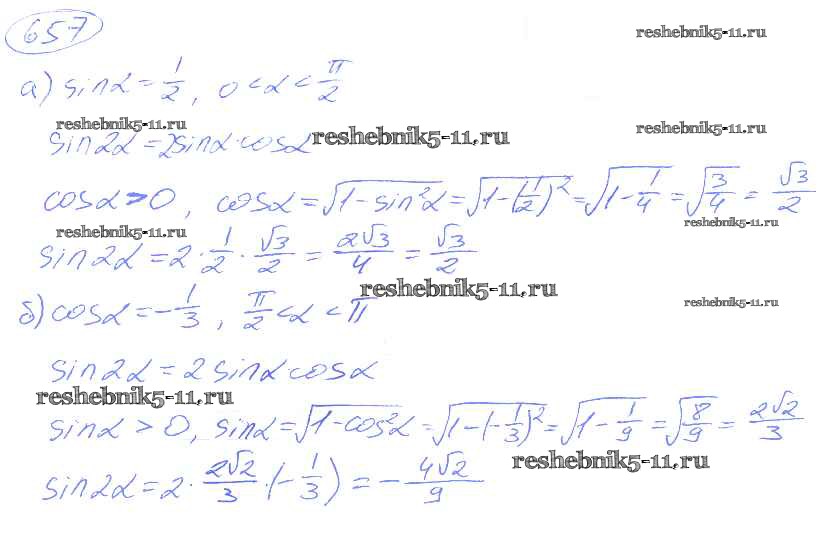 657
reshebnik5-11.ru
а) sinα = 1/2, 0 < α < π/2
reshebnik5-11.ru
reshebnik5-11.ru
reshebnik5-11.ru
sin2α = 2sinα·cosα
cosα > 0, cosα = √(1-sin²α) = √(1-(1/2)²) = √(1-1/4) = √(3/4) = √3/2
reshebnik5-11.ru
reshebnik5-11.ru
sin2α = 2·1/2·√3/2 = 2√3/4 = √3/2
reshebnik5-11.ru
reshebnik5-11.ru
б) cosα = -1/3, π/2 < α < π
sin2α = 2 sinα cosα
reshebnik5-11.ru
sinα > 0, sinα = √(1-cos²α) = √(1-(-1/3)²) = √(1-1/9) = √(8/9) = 2√2/3
reshebnik5-11.ru
sin2α = 2·2√2/3·(-1/3) = -4√2/9